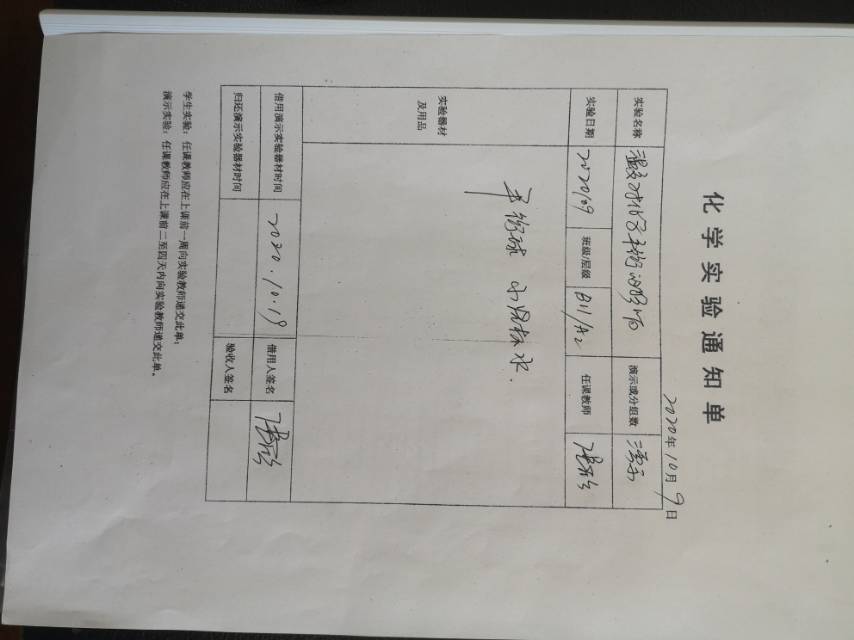 化学实验通知单
2020年10月9日
实验名称 温度对化学平衡的影响 演示或分组数 演示
实验日期 班级/层级 B11/A2 任课教师
实验器材及用品
平衡球 水
借用演示实验器材时间 2020.10.19 借用人签名
归还演示实验器材时间 验收人签名
学生实验：任课教师应在上课前一周向实验教师递交此单；
演示实验：任课教师应在上课前二至四天内向实验教师递交此单。